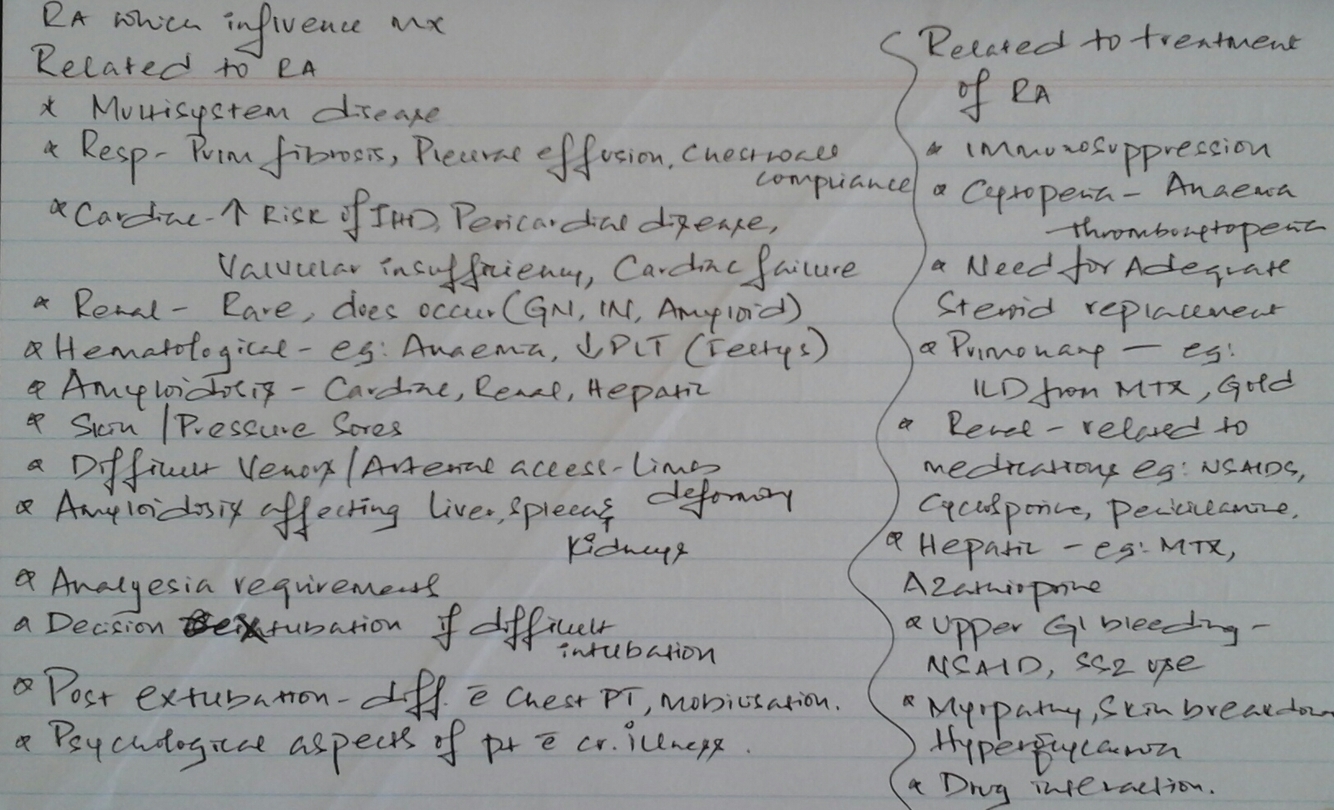 RA which influence Mx
Related to RA
* Multisystem disease
* Resp - Pulm fibrosis, Pleural effusion, Chestwall
compliance
* Cardiac - ↑ Risk of IHD, Pericardial disease,
Valvular insufficiency, Cardiac failure
* Renal - Rare, does occur (GN, IN, Amyloid)
* Hematological - eg: Anaema, ↓PLT (Feltys)
* Amyloidosis - Cardiac, Renal, Hepatic
* Skin / Pressure Sores
* Difficult Venous / Arterial access - Limb
deformity
* Amyloidosis affecting Liver, Spleen &
Kidneys
* Analgesia requirements
* Decision extubation if difficult
intubation
* Post extubation - diff c̄ Chest PT, mobilisation.
* Psychological aspects of pt c̄ cr. illness.
Related to treatment
of RA
* Immunosuppression
* Cytopenia - Anaema
thrombocytopenia
* Need for Adequate
Steroid replacement
* Pulmonary - eg:
ILD from MTX, Gold
* Renal - related to
medications eg: NSAIDS,
Cyclosporine, penicillamine.
* Hepatic - eg: MTX,
Azathioprine
* Upper GI bleeding -
NSAID, use
* Myopathy, Skin breakdown
Hyperglycaemia
* Drug interaction.